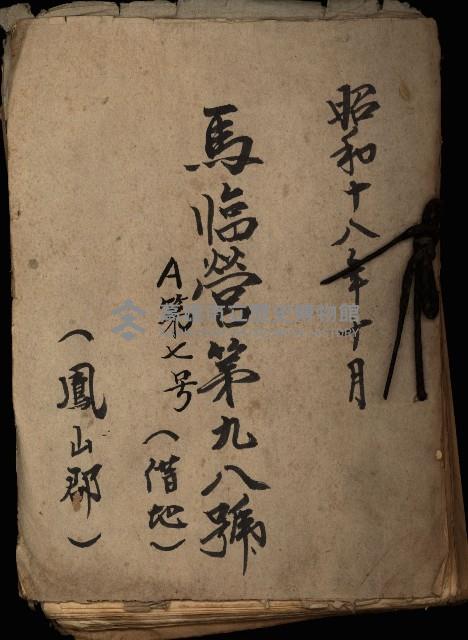 昭和十八年十月
馬臨營第九八號
A第七号
(借地)
(鳳山郡)
高雄市立歷史博物館